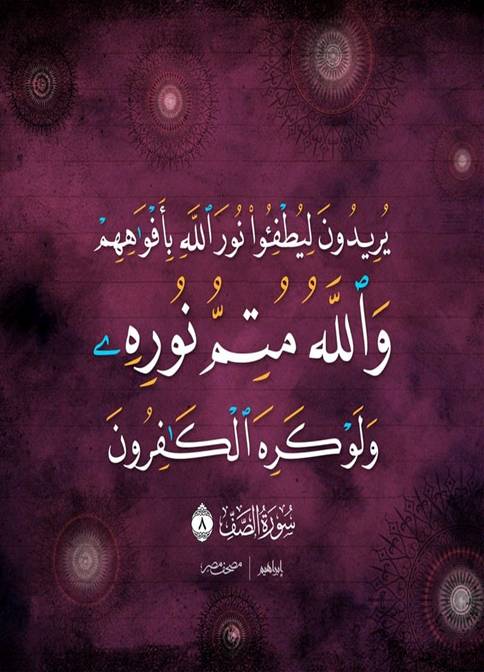 يُرِيدُونَ لِيُطْفِـُٔوا۟ نُورَ ٱللَّهِ بِأَفْوَٰهِهِمْ
وَٱللَّهُ مُتِمُّ نُورِهِۦ
وَلَوْ كَرِهَ ٱلْكَـٰفِرُونَ
سُورَةُ الصَّفِّ ٨
إبراهيم | مصحف مصر